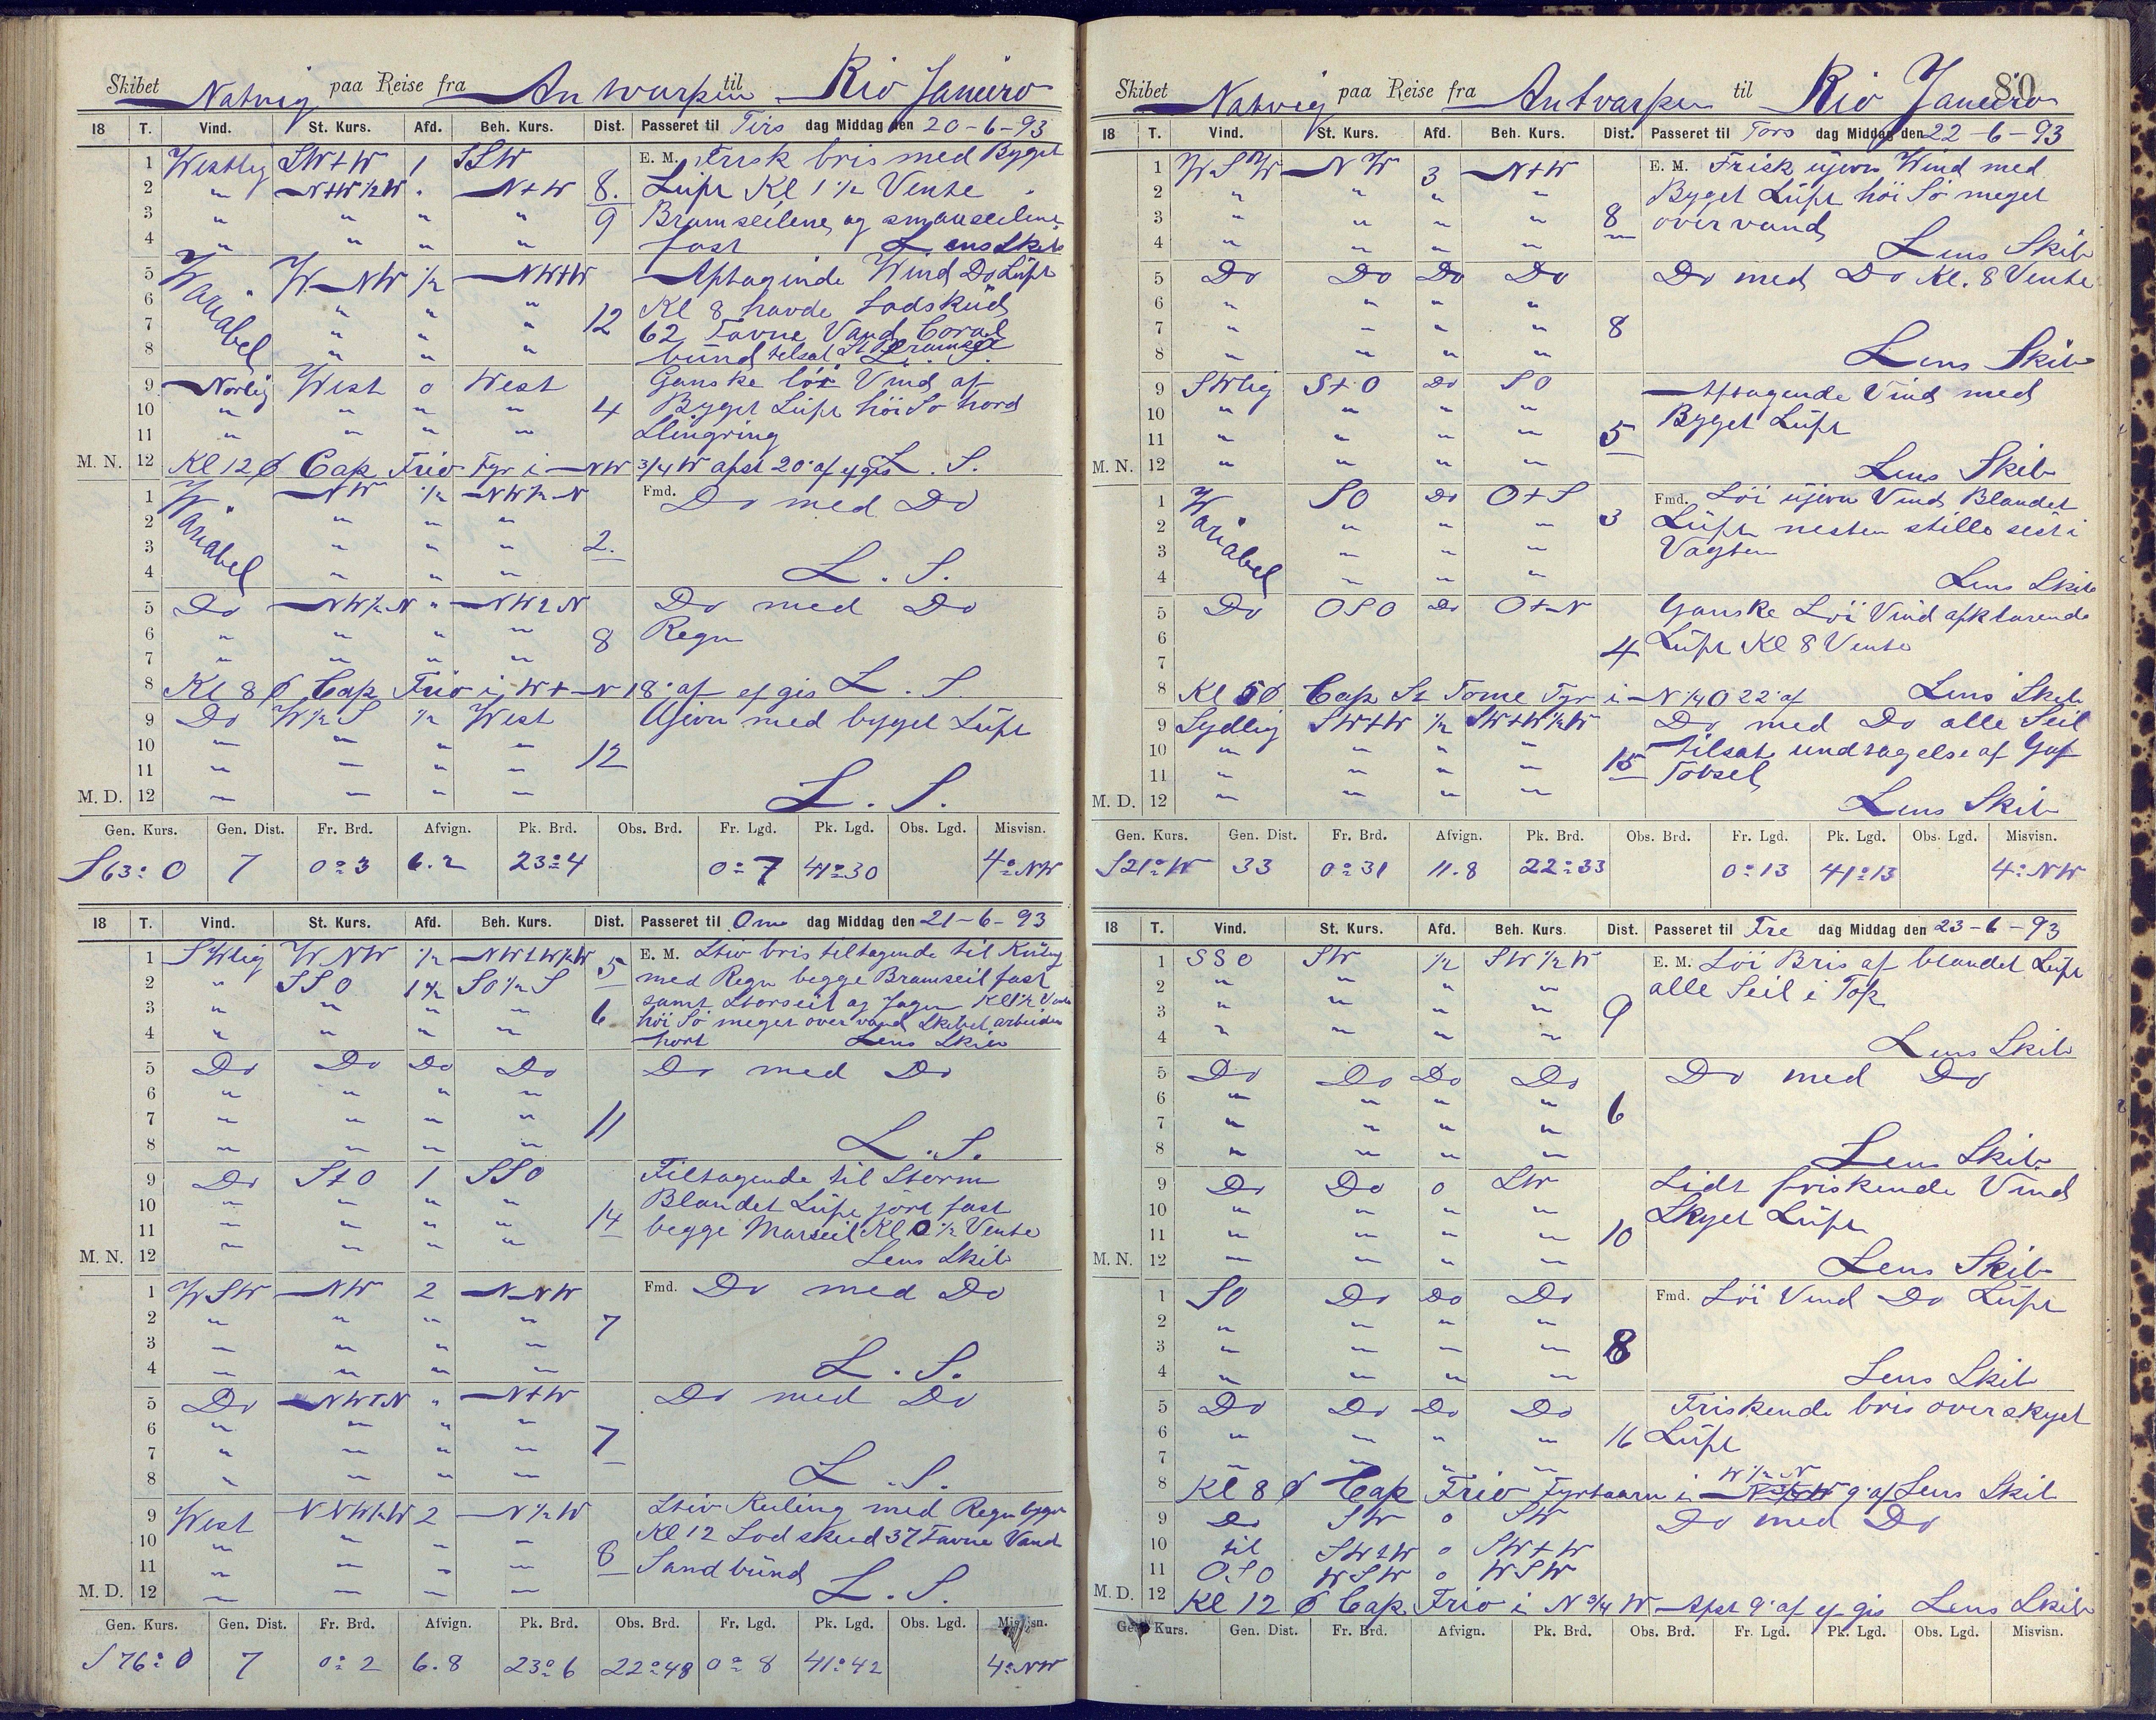 Skibet Natvig paa Reise fra Antwarpen til Rio Janeiro
18 T. Vind. St. Kurs. Afd. Beh. Kurs. Dist. Passeret til Tirs dag Middag den 20-6-93
1 Westlig SW+W 1 SSW E. M. Frisk bris med Byget
2 " N+W½W " N+W 8. Luft Kl 1½ Vente
3 " " " " 9 Bramseilene og smaaseilene
4 " " " " fast Lens Skib
5 Wariabel WNW ½ NW+W Aftaginde Wind Do Luft
6 " " " Kl 8 havde Lodskud
7 " " " 12 62 Favne Vand Coral
8 " " " bund tilsat
9 Norlig West 0 West Ganske löi Vind af
10 " " " " 4 Byget Luft höi Sö hord
11 " " " " Slingring
M. N. 12 Kl 12 Ø Cap Frio Fyr i NW ¾ W afst 20' af efgis L. S.
1 Wariabel NW ½ NW½N Fmd. Do med Do
2 " " "
3 " " " 2.
4 " " " L. S.
5 Do NW½N " NW2N Do med Do
6 " " " " 8 Regn
7 " " " "
8 Kl 8 Ø Cap Frio i W+N 18' af efgis L. S.
9 Do W½S ½ West Ujevn med byget Luft
10 " " " "
11 " " " " 12
M. D. 12 " " " " L. S.
Gen. Kurs. Gen. Dist. Fr. Brd. Afvign. Pk. Brd. Obs. Brd. Fr. Lgd. Pk. Lgd. Obs. Lgd. Misvisn.
S63°O 7 0°3 6.2 23°4 0°7 41°30 4°NW
18 T. Vind. St. Kurs. Afd. Beh. Kurs. Dist. Passeret til Ons dag Middag den 21-6-93
1 SWlig WNW ½ NW+W½W 5 E. M. Stiv bris tiltagende til Kuling
2 " SSO 1½ SO½S med Regn begge Bramseil fast
3 " " " " 6 samt Storseil og Jager Kl 1½ Vente
4 " " " " höi Sö meget over vand Skibet arbeider
hort Lens Skib
5 Do Do Do Do Do med Do
6 " " " "
7 " " " " 11
8 " " " " L. S.
9 Do S+O 1 SSO Tiltagende til Storm
10 " " " " Blandet Luft jört fast
11 " " " " 14 begge Marseil Kl 0½ Vente
M. N. 12 " " " " Lens Skib
1 WSW NW 2 NNW Fmd. Do med Do
2 " " " " 7
3 " " " "
4 " " " " L. S.
5 Do NW+N " N+W Do med Do
6 " " " "
7 " " " " 7
8 " " " " L. S.
9 West NNW½W 2 N½W Stiv Kuling med Regn byger
10 " " " " Kl 12 Lodskud 37 Favne Vand
11 " " " " 8 Sandbund
M. D. 12 " " " " L. S.
Gen. Kurs. Gen. Dist. Fr. Brd. Afvign. Pk. Brd. Obs. Brd. Fr. Lgd. Pk. Lgd. Obs. Lgd. Misvisn.
S76°O 7 0°2 6.8 23°6 22°48 0°8 41°42 4°NW
80
Skibet Natvig paa Reise fra Antvarpen til Rio Janeiro
18 T. Vind. St. Kurs. Afd. Beh. Kurs. Dist. Passeret til Tors dag Middag den 22-6-93
1 WSW NW 3 N+W E. M. Frisk ujevn Wind med
2 " " " " Byget Luft höi Sö meget
3 " " " " 8 over vand
4 " " " " Lens Skib
5 Do Do Do Do Do med Do Kl. 8 Vente
6 " " " "
7 " " " " 8
8 " " " " Lens Skib
9 SWlig S+O Do SO Aftagende Vind med
10 " " " " Byget Luft
11 " " " " 5
M. N. 12 " " " " Lens Skib
1 Wariabel SO Do O+S Fmd. Löi ujevn Vind Blandet
2 " " " 3 Luft nesten stille sist i
3 " " " Vagten
4 " " " Lens Skib
5 Do OSO Do O+N Ganske Löi Vind afklarende
6 Luft Kl 8 Vente
7 4
8 Kl 5 Ø Cap St Tome Fyr i N¼O 22' af Lens Skib
9 Sydlig SW+W ½ SW+W½W Do med Do alle Seil
10 " " " " tilsat undtagelse af Gaf
11 " " " " 15 Tobseil
M. D. 12 " " " " Lens Skib
Gen. Kurs. Gen. Dist. Fr. Brd. Afvign. Pk. Brd. Obs. Brd. Fr. Lgd. Pk. Lgd. Obs. Lgd. Misvisn.
S21°W 33 0°31 11.8 22°33 0°13 41°13 4°NW
18 T. Vind. St. Kurs. Afd. Beh. Kurs. Dist. Passeret til Fre dag Middag den 23-6-93
1 SSO SW ½ SW½W E. M. Löi Bris af blandet Luft
2 " " " " alle Seil i Top
3 " " " " 9
4 " " " " Lens Skib
5 Do Do Do Do Do med Do
6 " " " " 6
7 " " " "
8 " " " " Lens Skib
9 Do Do 0 SW Lidt friskende Vind
10 " " " " Skyet Luft
11 " " " " 10
M. N. 12 " " " " Lens Skib
1 SO Do Do Do Fmd. Löi Vind Do Luft
2 " " " "
3 " " " " 8
4 " " " " Lens Skib
5 Do Do Do Do Friskende bris overskyet
6 " " " " 16 Luft
7 " " " "
W½N
8 Kl 8 Ø Cap Frio Fyrtaarn i 9' af Lens Skib
9 Do SW 0 SW Do med Do
10 til SW2W 0 SW+W
11 OSO WSW 0 WSW
M. D. 12 Kl 12 Ø Cap Frio i N¾W Afst 9' af efgis Lens Skib
Gen. Kurs. Gen. Dist. Fr. Brd. Afvign. Pk. Brd. Obs. Brd. Fr. Lgd. Pk. Lgd. Obs. Lgd. Misvisn.